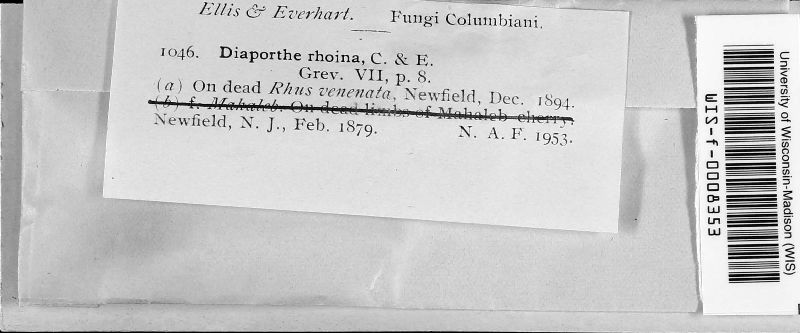 Ellis & Everhart. Fungi Columbiani.
1046. Diaporthe rhoina, C. & E.
Grev. VII, p. 8.
(a) On dead Rhus venenata, Newfield, Dec. 1894.
(b) f. Mahaleb. On dead limbs of Mahaleb cherry.
Newfield, N. J., Feb. 1879. N. A. F. 1953.
University of Wisconsin-Madison (WIS)
WIS-f-0008353